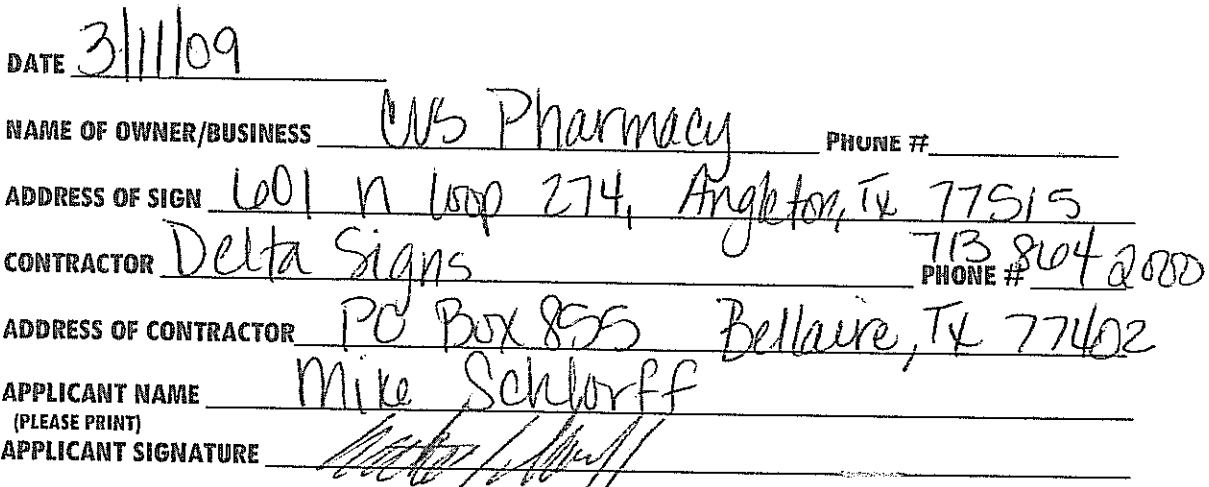 DATE 3/11/09
NAME OF OWNER/BUSINESS CVS Pharmacy PHONE #
ADDRESS OF SIGN 601 n loop 274, Angleton, Tx 77515
CONTRACTOR Delta Signs PHONE # 713 864 2000
ADDRESS OF CONTRACTOR PO Box 855 Bellaire, Tx 77402
APPLICANT NAME Mike Schlorff
(PLEASE PRINT)
APPLICANT SIGNATURE